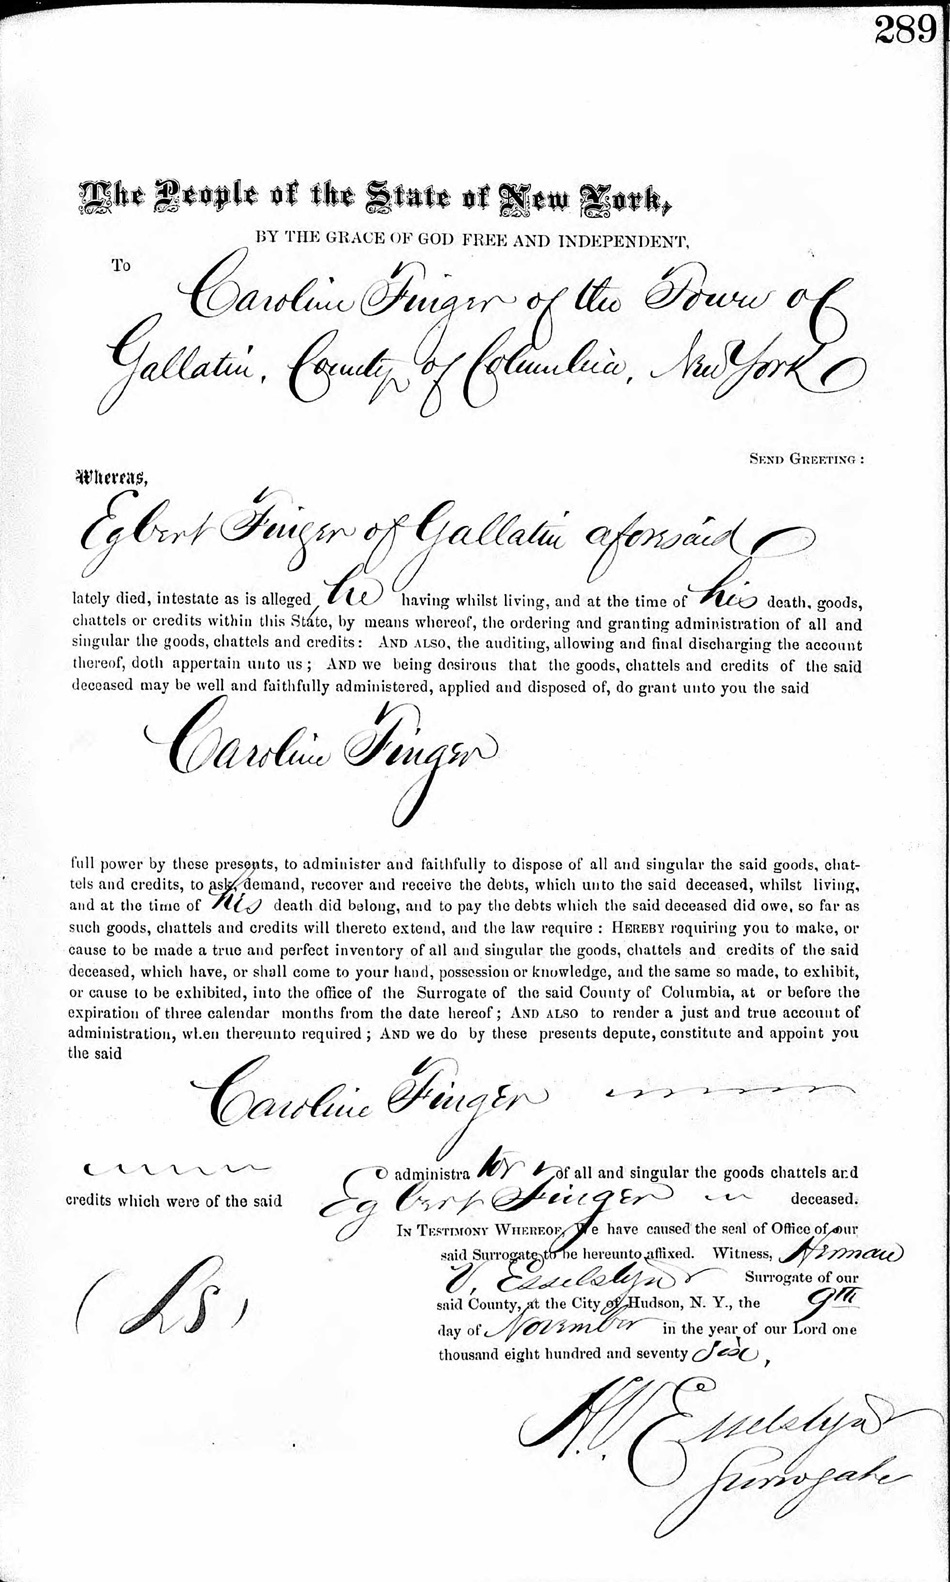 289
The People of the State of New York,
BY THE GRACE OF GOD FREE AND INDEPENDENT,
To
Caroline Finger of the Town of
Gallatin, County of Columbia, New York
SEND GREETING :
Whereas,
Egbert Finger of Gallatin aforesaid
lately died, intestate as is alleged he having whilst living, and at the time of his death, goods,
chattels or credits within this State, by means whereof, the ordering and granting administration of all and
singular the goods, chattels and credits: AND ALSO, the auditing, allowing and final discharging the account
thereof, doth appertain unto us; AND we being desirous that the goods, chattels and credits of the said
deceased may be well and faithfully administered, applied and disposed of, do grant unto you the said
Caroline Finger
full power by these presents, to administer and faithfully to dispose of all and singular the said goods, chat-
tels and credits, to ask, demand, recover and receive the debts, which unto the said deceased, whilst living,
and at the time of his death did belong, and to pay the debts which the said deceased did owe, so far as
such goods, chattels and credits will thereto extend, and the law require: HEREBY requiring you to make, or
cause to be made a true and perfect inventory of all and singular the goods, chattels and credits of the said
deceased, which have, or shall come to your hand, possession or knowledge, and the same so made, to exhibit,
or cause to be exhibited, into the office of the Surrogate of the said County of Columbia, at or before the
expiration of three calendar months from the date hereof; AND ALSO to render a just and true account of
administration, when thereunto required; AND we do by these presents depute, constitute and appoint you
the said
Caroline Finger
administrator of all and singular the goods chattels and
credits which were of the said Egbert Finger deceased.
IN TESTIMONY WHEREOF, We have caused the seal of Office of our
said Surrogate to be hereunto affixed. Witness, Herman
V. Esselstyn Surrogate of our
said County, at the City of Hudson, N. Y., the 9th
day of November in the year of our Lord one
thousand eight hundred and seventy six,
(LS)
H.V. Esselstyn
Surrogate